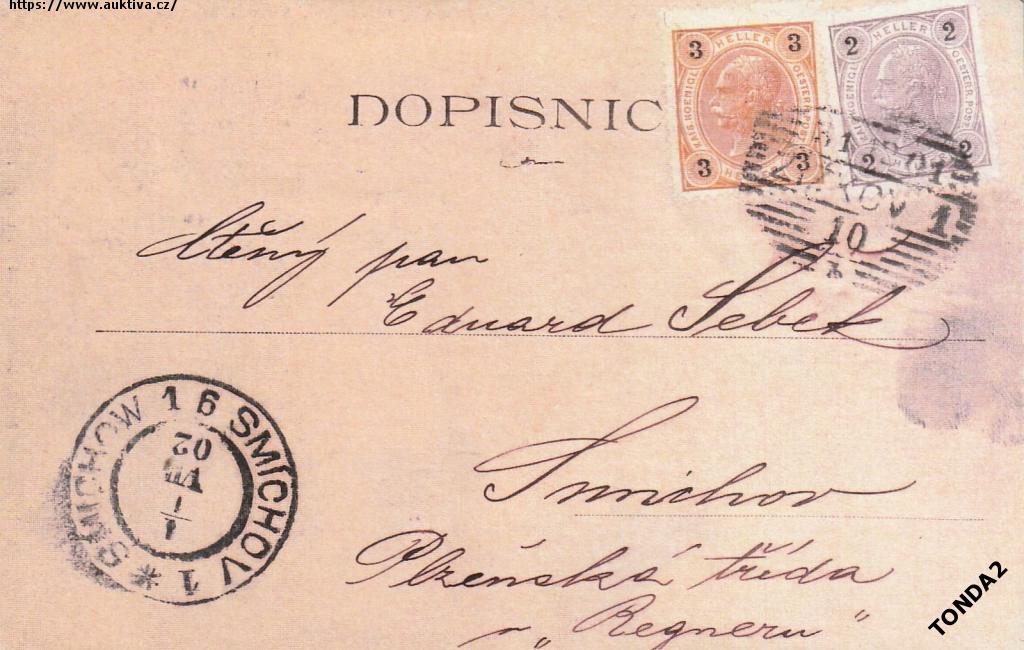 https://www.auktiva.cz/
3 HELLER 3
KAIS. KOENIGL. OESTERR. POST
3 3
2 HELLER 2
KAIS. KOENIGL. OESTERR. POST
2 2
DOPISNIC
10
1
Ctěný pan
Eduard Šebek
Smíchov
Plzeňská třída
„Regneru“
SMÍCHOV 1 * SMICHOW 1 6
02
VII
1
TONDA2